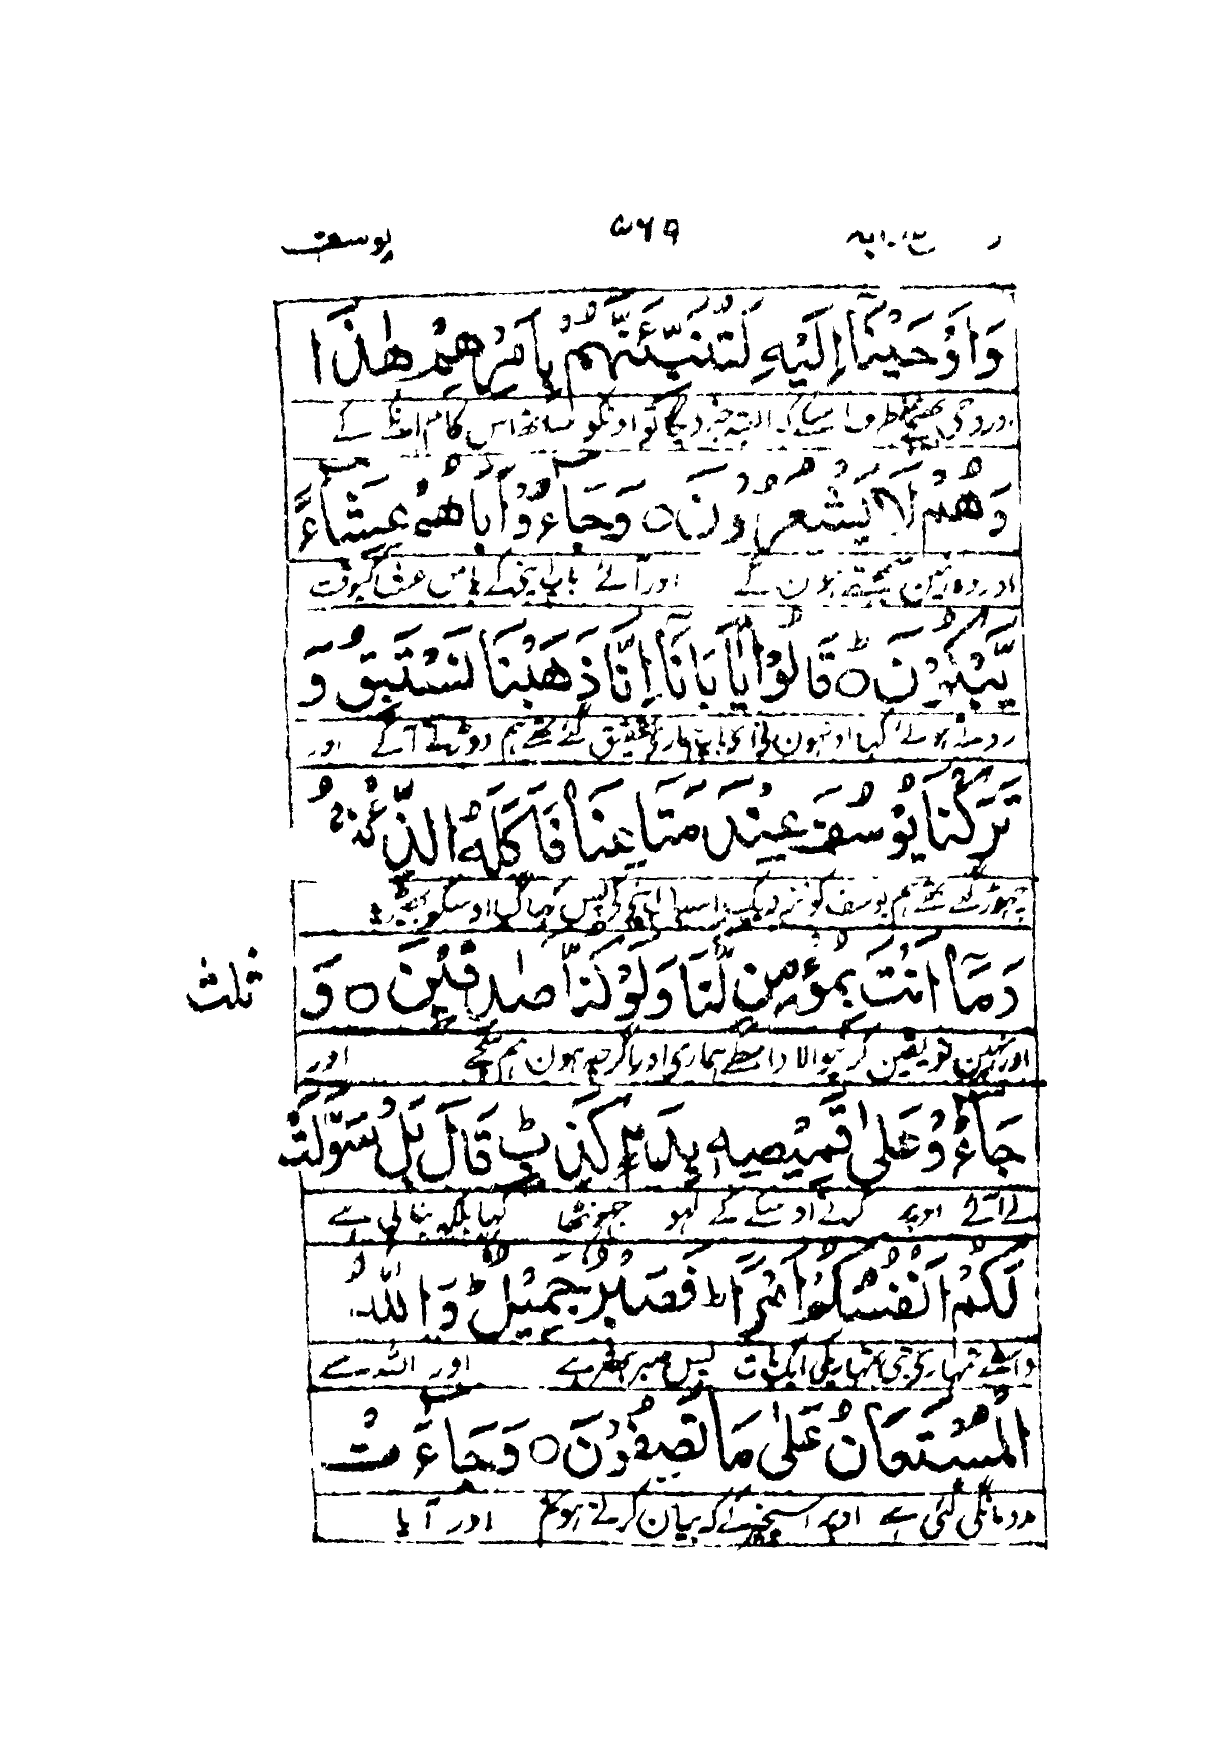 يوسف ۵۶۹
وَاَوْحَيْنَآ اِلَيْهِ لَتُنَبِّئَنَّهُمْ بِاَمْرِهِمْ هٰذَا
اور وحی بھیجی طرف اسکے کہ البتہ خبر دیگا تو اونکو ساتھ اس کام اونکے کے
وَهُمْ لَا يَشْعُرُوْنَ ○ وَجَآءُوْٓ اَبَاهُمْ عِشَآءً
اور وہ نہین سمجھتے ہون گے اور آئے باپ اپنے کے پاس عشا کیوقت
يَّبْكُوْنَ ○ؕ قَالُوْا يٰٓاَبَانَآ اِنَّا ذَهَبْنَا نَسْتَبِقُ وَ
روتے ہوئے کہا اونہون نے ای باپ ہماری تحقیق گئے تھے ہم دوڑتے آگے اور
تَرَكْنَا يُوْسُفَ عِنْدَ مَتَاعِنَا فَاَكَلَهُ الذِّئْبُ ۚ
چھوڑ گئے تھے ہم یوسف کو نزدیک اسباب اپنی کی پس کھا گیا اوسکو بھیڑیا
وَمَآ اَنْتَ بِمُؤْمِنٍ لَّنَا وَلَوْ كُنَّا صٰدِقِيْنَ ○ وَ
ثلث
اور نہین تو یقین کرنیوالا واسطے ہماری اور اگرچہ ہون ہم سچے اور
جَآءُوْ عَلٰى قَمِيْصِهٖ بِدَمٍ كَذِبٍ ؕ قَالَ بَلْ سَوَّلَتْ
لے آئے اوپر کرتے اوسکے کے لہو جھوٹھا کہا بلکہ بنا لی ہے
لَكُمْ اَنْفُسُكُمْ اَمْرًا ؕ فَصَبْرٌ جَمِيْلٌ ؕ وَاللّٰهُ
واسطے تمہاری جی تمہاریکی ایک بات پس صبر بہتر ہے اور اللہ ہے
الْمُسْتَعَانُ عَلٰى مَا تَصِفُوْنَ ○ وَجَآءَتْ
مدد مانگی گئی ہے اوپر اسچیز کے کہ بیان کرتے ہو تم اور آیا